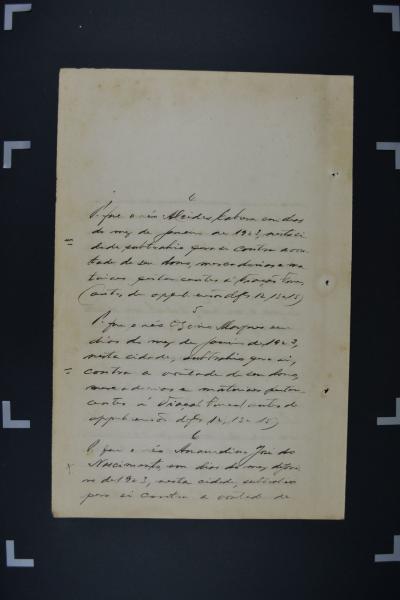 P. que o réo Alcides Cabera em dias
do mez de Janeiro de 1923, nesta ci
dade, subtrahio para si contra a von
tade de seu dono, mercadorias e ma
teriaes pertencentes á Viação Ferrea,
(autos de apprehensão de fs 12, 13 e 15)
5
P. que o réo Marques em
dias do mez de Janeiro de 1923,
nesta cidade, subtrahio para si,
contra a vontade de seu dono,
mercadorias e materiaes perten
centes á Viação Ferrea (autos de
apprehensão de fs 12, 13 e 15)
6
P. que o réo José do
Nascimento, em dias do mez de
de 1923, nesta cidade, subtrahio
para si contra a vontade de